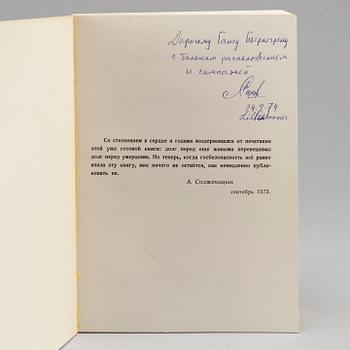 Дорогому Гансу Бьеркегрену
с большим расположением
и симпатией
24.9.74
Со стеснением в сердце я годами воздерживался от печатания
этой уже готовой книги: долг перед еще живыми перевешивал
долг перед умершими. Но теперь, когда госбезопасность всё равно
взяла эту книгу, мне ничего не остаётся, как немедленно публи-
ковать ее.
А. Солженицын
сентябрь 1973.